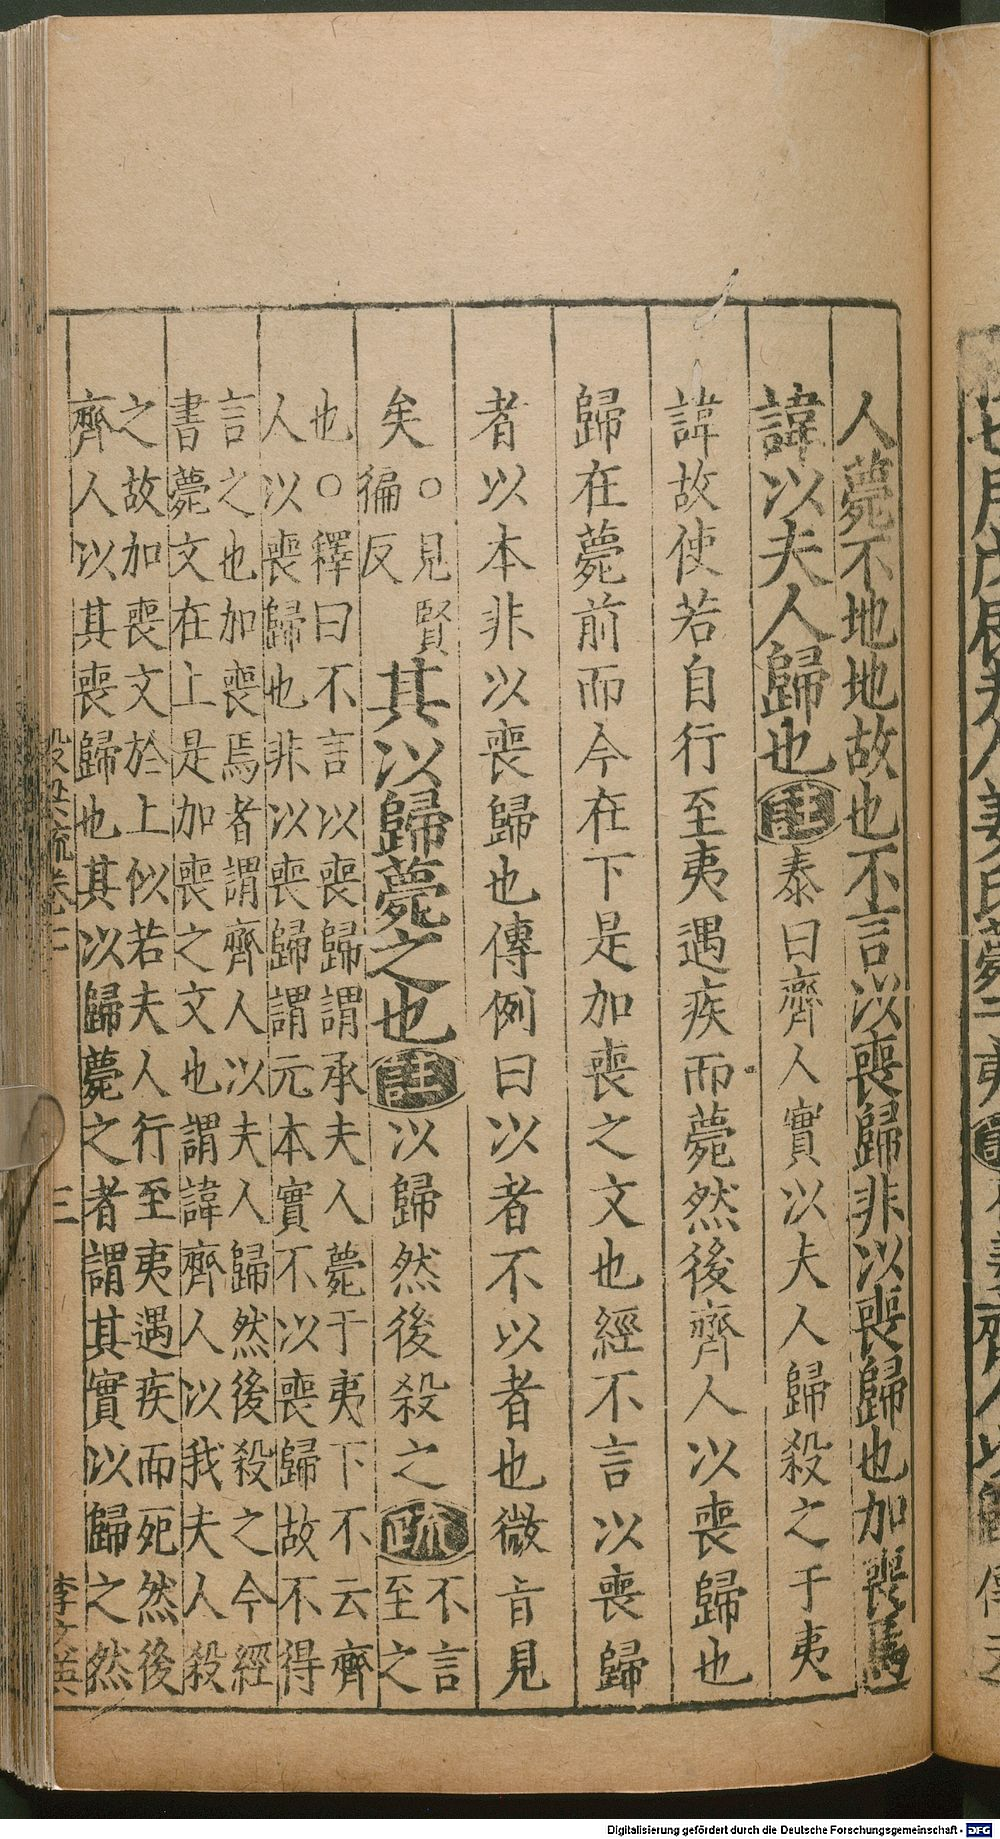 人薨不地地故也不言以喪歸非以喪歸也加喪焉
諱以夫人歸也註泰曰齊人實以夫人歸殺之于夷
諱故使若自行至夷遇疾而薨然後齊人以喪歸也
歸在薨前而今在下是加喪之文也經不言以喪歸
者以本非以喪歸也傳例曰以者不以者也微旨見
矣○見賢徧反其以歸薨之也註以歸然後殺之疏不言至之
也○釋曰不言以喪歸謂承夫人薨于夷下不云齊
人以喪歸也非以喪歸謂元本實不以喪歸故不得
言之也加喪焉者謂齊人以夫人歸然後殺之今經
書薨文在上是加喪之文也謂諱齊人以我夫人殺
之故加喪文於上似若夫人行至夷遇疾而死然後
齊人以其喪歸也其以歸薨之者謂其實以歸之然
三
Digitalisierung gefördert durch die Deutsche Forschungsgemeinschaft - DFG